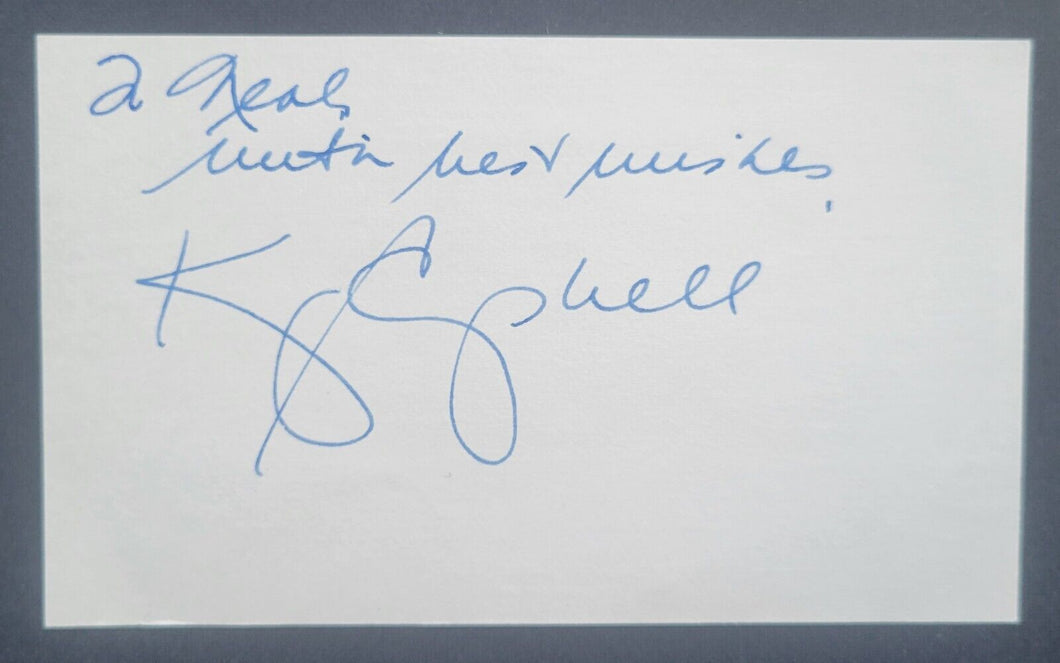 2 Neal,
with best wishes,
Kay Campbell